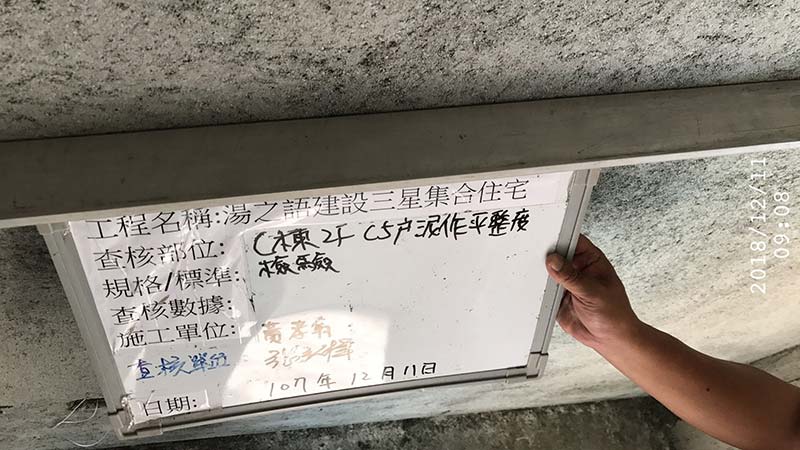 工程名稱:湯之語建設三星集合住宅
查核部位: C棟2F C5戶泥作平整度
規格/標準: 檢驗
查核數據:
施工單位:
查核單位
日期: 107年12月11日
2018/12/11
09:08